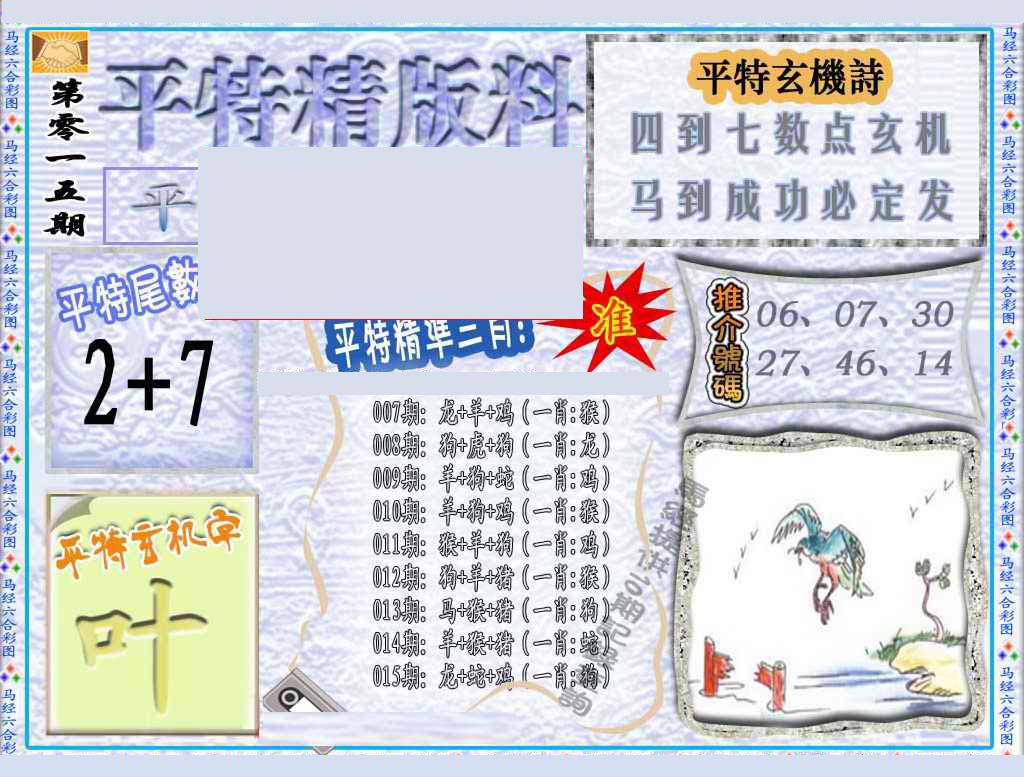 马经六合彩图 马经六合彩图 马经六合彩图 马经六合彩图 马经六合彩图 马经六合彩图 马经六合彩
第零一五期
平特精版料
平
平特玄機詩
四到七数点玄机
马到成功必定发
平特尾數
2+7
平特精準三肖!
准
推介號碼
06、07、30
27、46、14
007期: 龙+羊+鸡(一肖:猴)
008期: 狗+虎+狗(一肖:龙)
009期: 羊+狗+蛇(一肖:鸡)
010期: 羊+狗+鸡(一肖:猴)
011期: 猴+羊+狗(一肖:鸡)
012期: 狗+羊+猪(一肖:猴)
013期: 马+猴+猪(一肖:狗)
014期: 羊+猴+猪(一肖:蛇)
015期: 龙+蛇+鸡(一肖:狗)
平特玄机字
叶
马经六合彩图 马经六合彩图 马经六合彩图 马经六合彩图 马经六合彩图 马经六合彩图 马经六合彩图